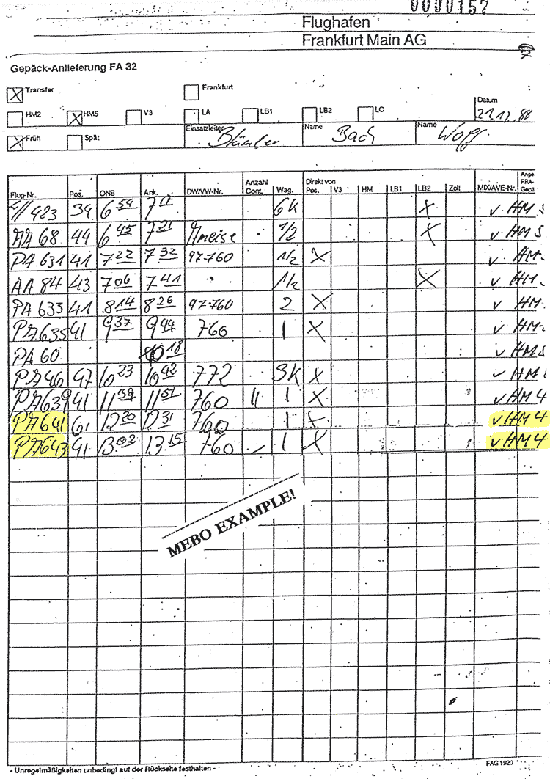 0000157
Flughafen
Frankfurt Main AG
Gepäck-Anlieferung FA 32
X Transfer Frankfurt
HM2 X HM5 V3 LA LB1 LB2 LC Datum
21.12.88
X Früh Spät Einsatzleiter Name Bach Name
Flug-Nr. Pos. ONB Ank. Anzahl Cont. Wag. Direkt von Pos. V3 HM LB1 LB2 Zeit
483 34 6 54 7 6K X v HM 5
AA 68 44 6 45 7 21 Ameise 1/2 X v HM 5
PA 631 41 7 22 7 32 97-760 1/2 X v HM
AA 84 43 7 06 7 41 1/2 X v HM
PA 633 41 8 14 8 26 97-760 2 X v HM
PA 635 41 9 37 9 44 760 1 X v HM
PA 60 10 18 v HM 5
PA 46 47 10 23 10 42 772 3K X v HM
PA 639 41 11 39 11 51 760 1 X v HM 4
PA 641 61 12 20 12 31 760 1 X v HM 4
PA 643 41 13 02 13 15 760 1 X v HM 4
MEBO EXAMPLE!
- Unregelmäßigkeiten unbedingt auf der Rückseite festhalten -